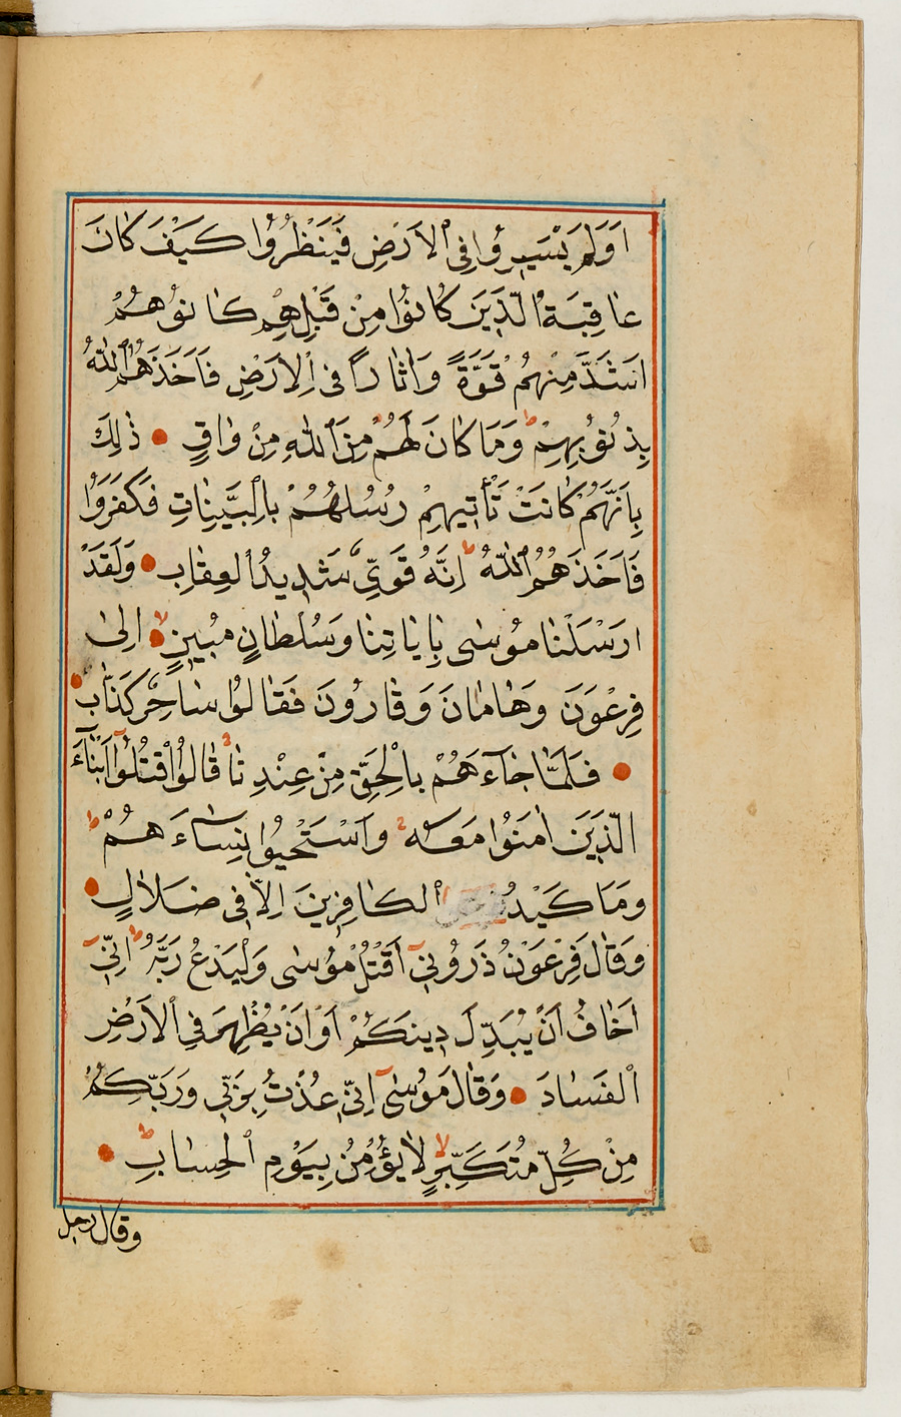 اَوَلَمْ يَسٖيرُوا فِى الْاَرْضِ فَيَنْظُرُوا كَيْفَ كَانَ
عَاقِبَةُ الَّذٖينَ كَانُوا مِنْ قَبْلِهِمْ كَانُوا هُمْ
اَشَدَّ مِنْهُمْ قُوَّةً وَاٰثَارًا فِى الْاَرْضِ فَاَخَذَهُمُ اللّٰهُ
بِذُنُوبِهِمْ وَمَا كَانَ لَهُمْ مِنَ اللّٰهِ مِنْ وَاقٍ ذٰلِكَ
بِاَنَّهُمْ كَانَتْ تَأْتٖيهِمْ رُسُلُهُمْ بِالْبَيِّنَاتِ فَكَفَرُوا
فَاَخَذَهُمُ اللّٰهُ اِنَّهُ قَوِىٌّ شَدٖيدُ الْعِقَابِ وَلَقَدْ
اَرْسَلْنَا مُوسٰى بِاٰيَاتِنَا وَسُلْطَانٍ مُبٖينٍ اِلٰى
فِرْعَوْنَ وَهَامَانَ وَقَارُونَ فَقَالُوا سَاحِرٌ كَذَّابٌ
فَلَمَّا جَاءَهُمْ بِالْحَقِّ مِنْ عِنْدِنَا قَالُوا اقْتُلُوا اَبْنَاءَ
الَّذٖينَ اٰمَنُوا مَعَهُ وَاسْتَحْيُوا نِسَاءَهُمْ
وَمَا كَيْدُ الْكَافِرٖينَ اِلَّا فٖى ضَلَالٍ
وَقَالَ فِرْعَوْنُ ذَرُونٖى اَقْتُلْ مُوسٰى وَلْيَدْعُ رَبَّهُ اِنّٖى
اَخَافُ اَنْ يُبَدِّلَ دٖينَكُمْ اَوْ اَنْ يُظْهِرَ فِى الْاَرْضِ
الْفَسَادَ وَقَالَ مُوسٰى اِنّٖى عُذْتُ بِرَبّٖى وَرَبِّكُمْ
مِنْ كُلِّ مُتَكَبِّرٍ لَا يُؤْمِنُ بِيَوْمِ الْحِسَابِ
وقال رجل